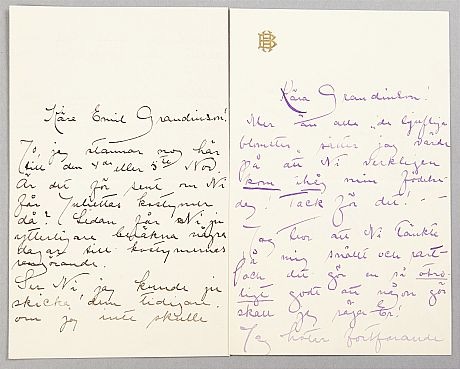 Kära Emil Grandinson!
Ja, jag stannar nog här
till den 4de eller 5te Nov.
Är det för sent om Ni
får Juliettas kostymer
då? Sedan får Ni ju
ytterligare beräkna några
dagar till kostymernas
rengörande.
Ser Ni jag kunde ju
skicka dem tidigare
om jag inte skulle
Kära Grandinson!
Mer än alla "de ljufliga
blomster" sätter jag värde
på att Ni verkligen
kom ihåg min födelse
dag! Tack för det! - -
Jag tror att Ni tänkte
på mig snällt och
och det gör en så otro-
ligt godt att någon gör
skall jag säga Er!
Jag heter fortfarande